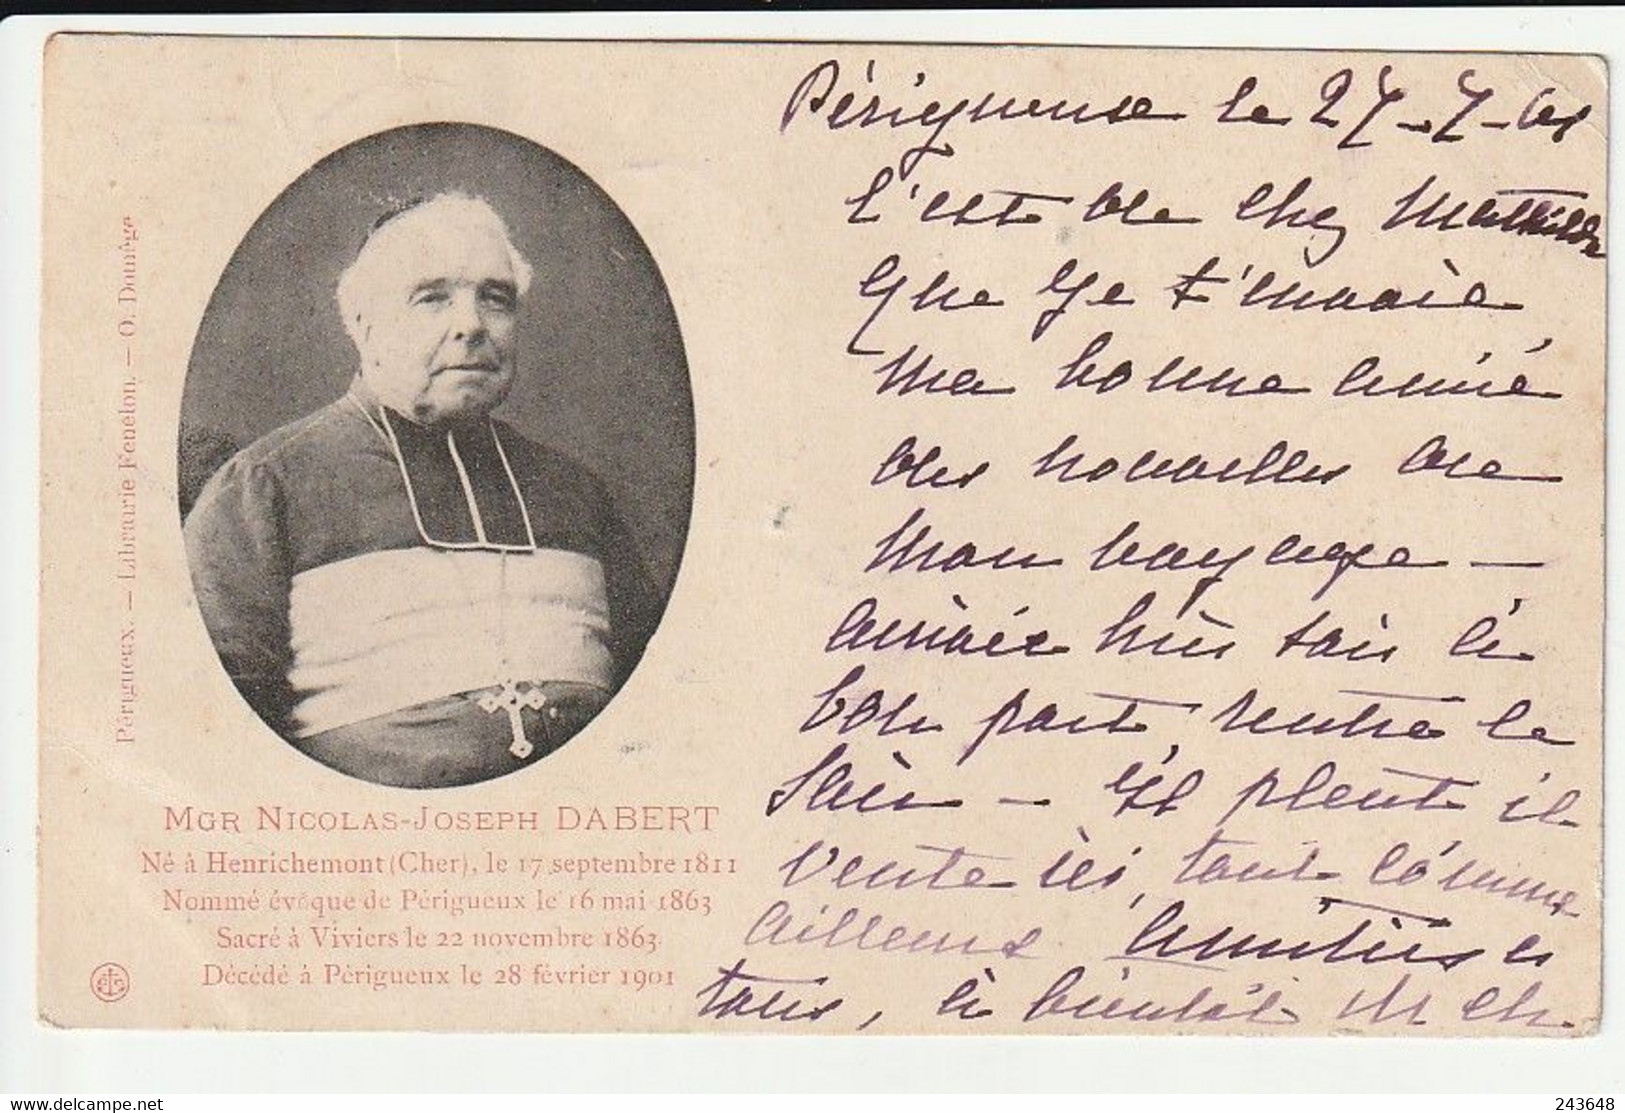 Périgueux. — Librairie Fenelon. — O. Domège
MGR NICOLAS-JOSEPH DABERT
Né à Henrichemont (Cher), le 17 septembre 1811
Nommé évêque de Périgueux le 16 mai 1863
Sacré à Viviers le 22 novembre 1863
Décédé à Périgueux le 28 février 1901
Périgueux le 27-7-
C'est de chez Mathilde
que je t'envoie
ma bonne amie
des nouvelles de
mon voyage —
arrivée hier soir à
bon port, rentré le
— il pleut il
vente ici, tout comme
ailleurs. amitiés à
tous, à bientôt M Ch.
243648